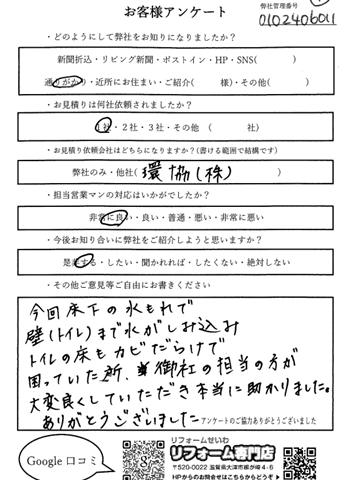 お客様アンケート
弊社管理番号
0102406011
・どのようにして弊社をお知りになりましたか？
新聞折込・リビング新聞・ポストイン・HP・SNS(　　　)
通りがかり・近所にお住まい・ご紹介(　　　様)・その他(　　　)
・お見積りは何社依頼されましたか？
1社・2社・3社・その他 (　　　社)
・お見積り依頼会社はどちらになりますか？(書ける範囲で結構です)
弊社のみ・他社( 環協(株) )
・担当営業マンの対応はいかがでしたか？
非常に良い・良い・普通・悪い・非常に悪い
・今後お知り合いに弊社をご紹介しようと思いますか？
是非する・したい・聞かれれば・したくない・絶対しない
・その他ご意見等ご自由にお書きください
今回床下の水もれで
壁(トイレ)まで水がしみ込み
トイレの床もカビだらけで
困っていた所、御社の担当の方が
大変良くしていただき本当に助かりました。
ありがとうございました
アンケートのご協力ありがとうございました
Google 口コミ
リフォームせいわ
リフォーム専門店
〒520-0022 滋賀県大津市柳が崎4-6
HPからのお問合せはこちらからどうぞ